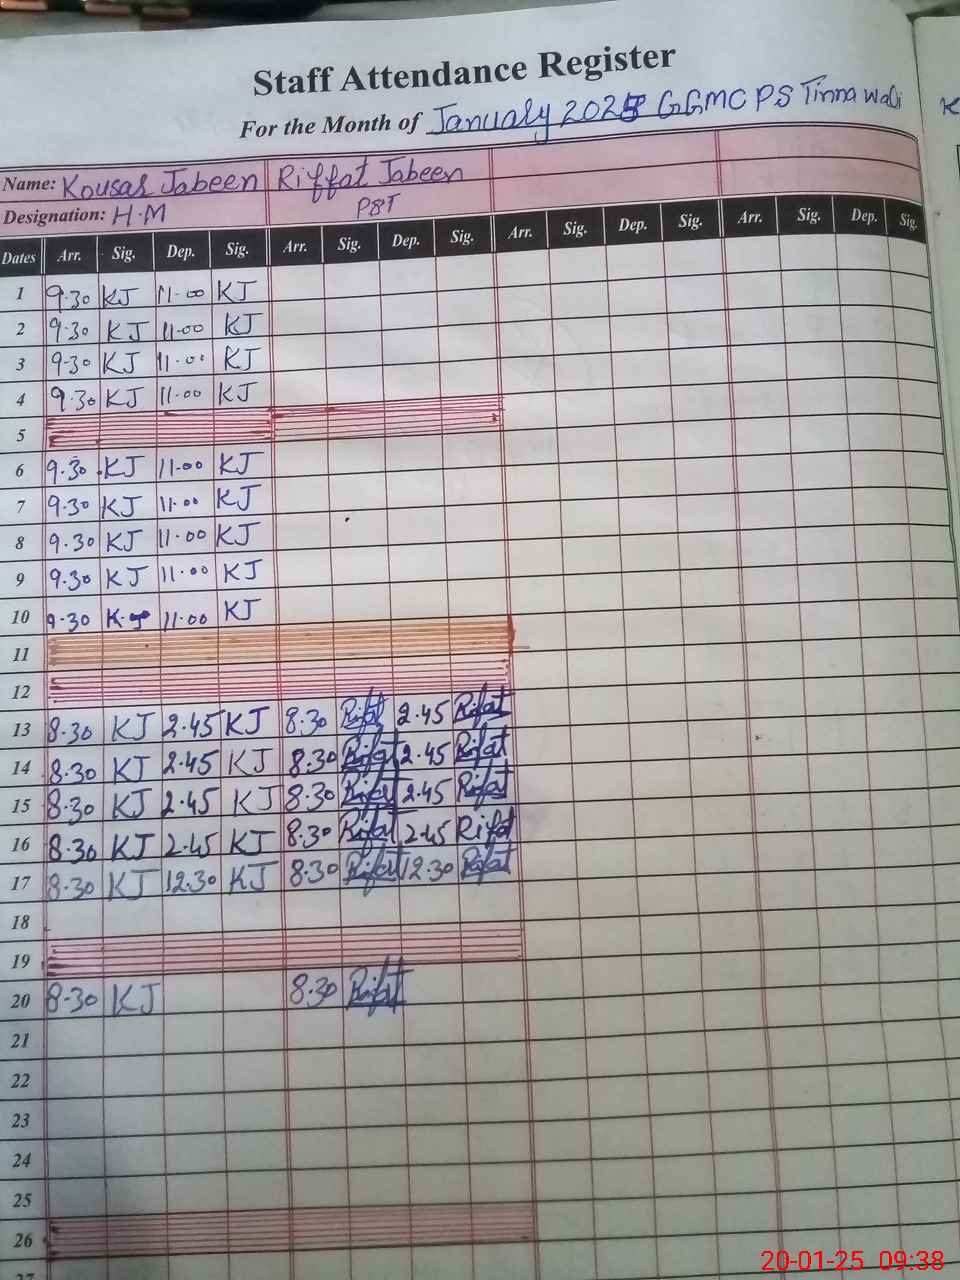 Staff Attendance Register
For the Month of January 2025 GGMC PS Tinna Wali
Name: Kousar Jabeen Riffat Jabeen
Designation: H.M PST
Dates Arr. Sig. Dep. Sig. Arr. Sig. Dep. Sig. Arr. Sig. Dep. Sig. Arr. Sig. Dep. Sig.
1 9.30 KJ 11.00 KJ
2 9.30 KJ 11.00 KJ
3 9.30 KJ 11.00 KJ
4 9.30 KJ 11.00 KJ
5
6 9.30 KJ 11.00 KJ
7 9.30 KJ 11.00 KJ
8 9.30 KJ 11.00 KJ
9 9.30 KJ 11.00 KJ
10 9.30 KJ 11.00 KJ
11
12
13 8.30 KJ 2.45 KJ 8.30 Rifat 2.45 Rifat
14 8.30 KJ 2.45 KJ 8.30 Rifat 2.45 Rifat
15 8.30 KJ 2.45 KJ 8.30 Rifat 2.45 Rifat
16 8.30 KJ 2.45 KJ 8.30 Rifat 2.45 Rifat
17 8.30 KJ 12.30 KJ 8.30 Rifat 12.30 Rifat
18
19
20 8.30 KJ 8.30 Rifat
21
22
23
24
25
26
20-01-25 09:38